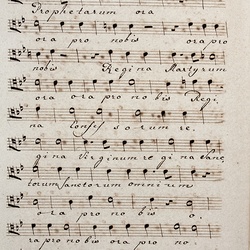 Prophetarum ora
ora pro nobis ora pro
nobis Regina Martyrum
ora ora pro nobis Regi
na Confes so rum re
gina Virginum regina Sanc
torum Sanctorum omnium
ora pro nobis o
ra pro nobis ora pro no